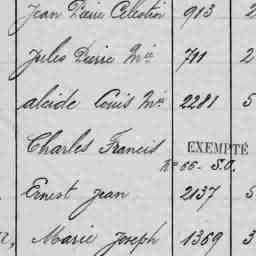 Jean Pierre Célestin 913 2
Jules Pierre Mie 711 2
Alcide Louis Mie 2281 5
Charles Francis EXEMPTÉ
No 66. S.O.
Ernest Jean 2137 5
Marie Joseph 1359 3